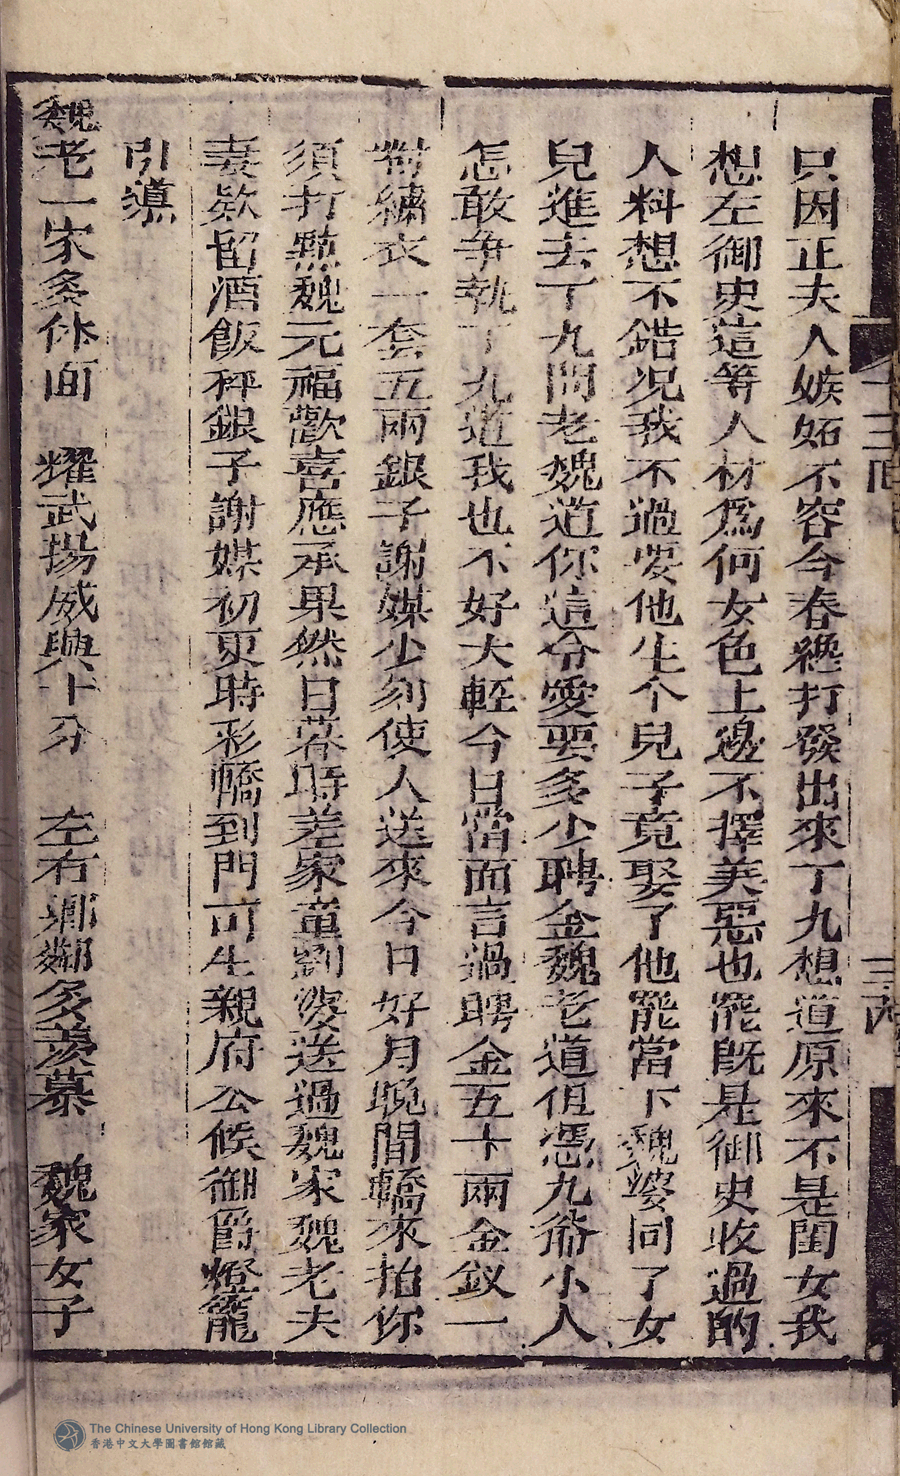 只因正夫人嫉妬不容今春纔打發出來丁九想道原來不是閨女我
想左御史這等人材爲何女色上邊不擇美惡也罷旣是御史收過的
人料想不錯况我不過要他生个兒子竟娶了他罷當下魏婆同了女
兒進去丁九問老魏道你這令愛要多少聘金魏老道但憑九爺小人
怎敢爭執丁九道我也不好大輕今日當面言過聘金五十兩金釵一
對繡衣一套五兩銀子謝媒少刻使人送來今日好月晚間轎來抬你
須打點魏元福歡喜應承果然日暮時差家童劉婆送過魏家魏老夫
妻欵留酒飯秤銀子謝媒初更時彩轎到門可生親府公候御爵燈籠
引導
魏老一家兪休面　耀武揚威興十分　左右鄉鄰多羨慕　魏家女子
十三囘
三
The Chinese University of Hong Kong Library Collection
香港中文大學圖書館館藏